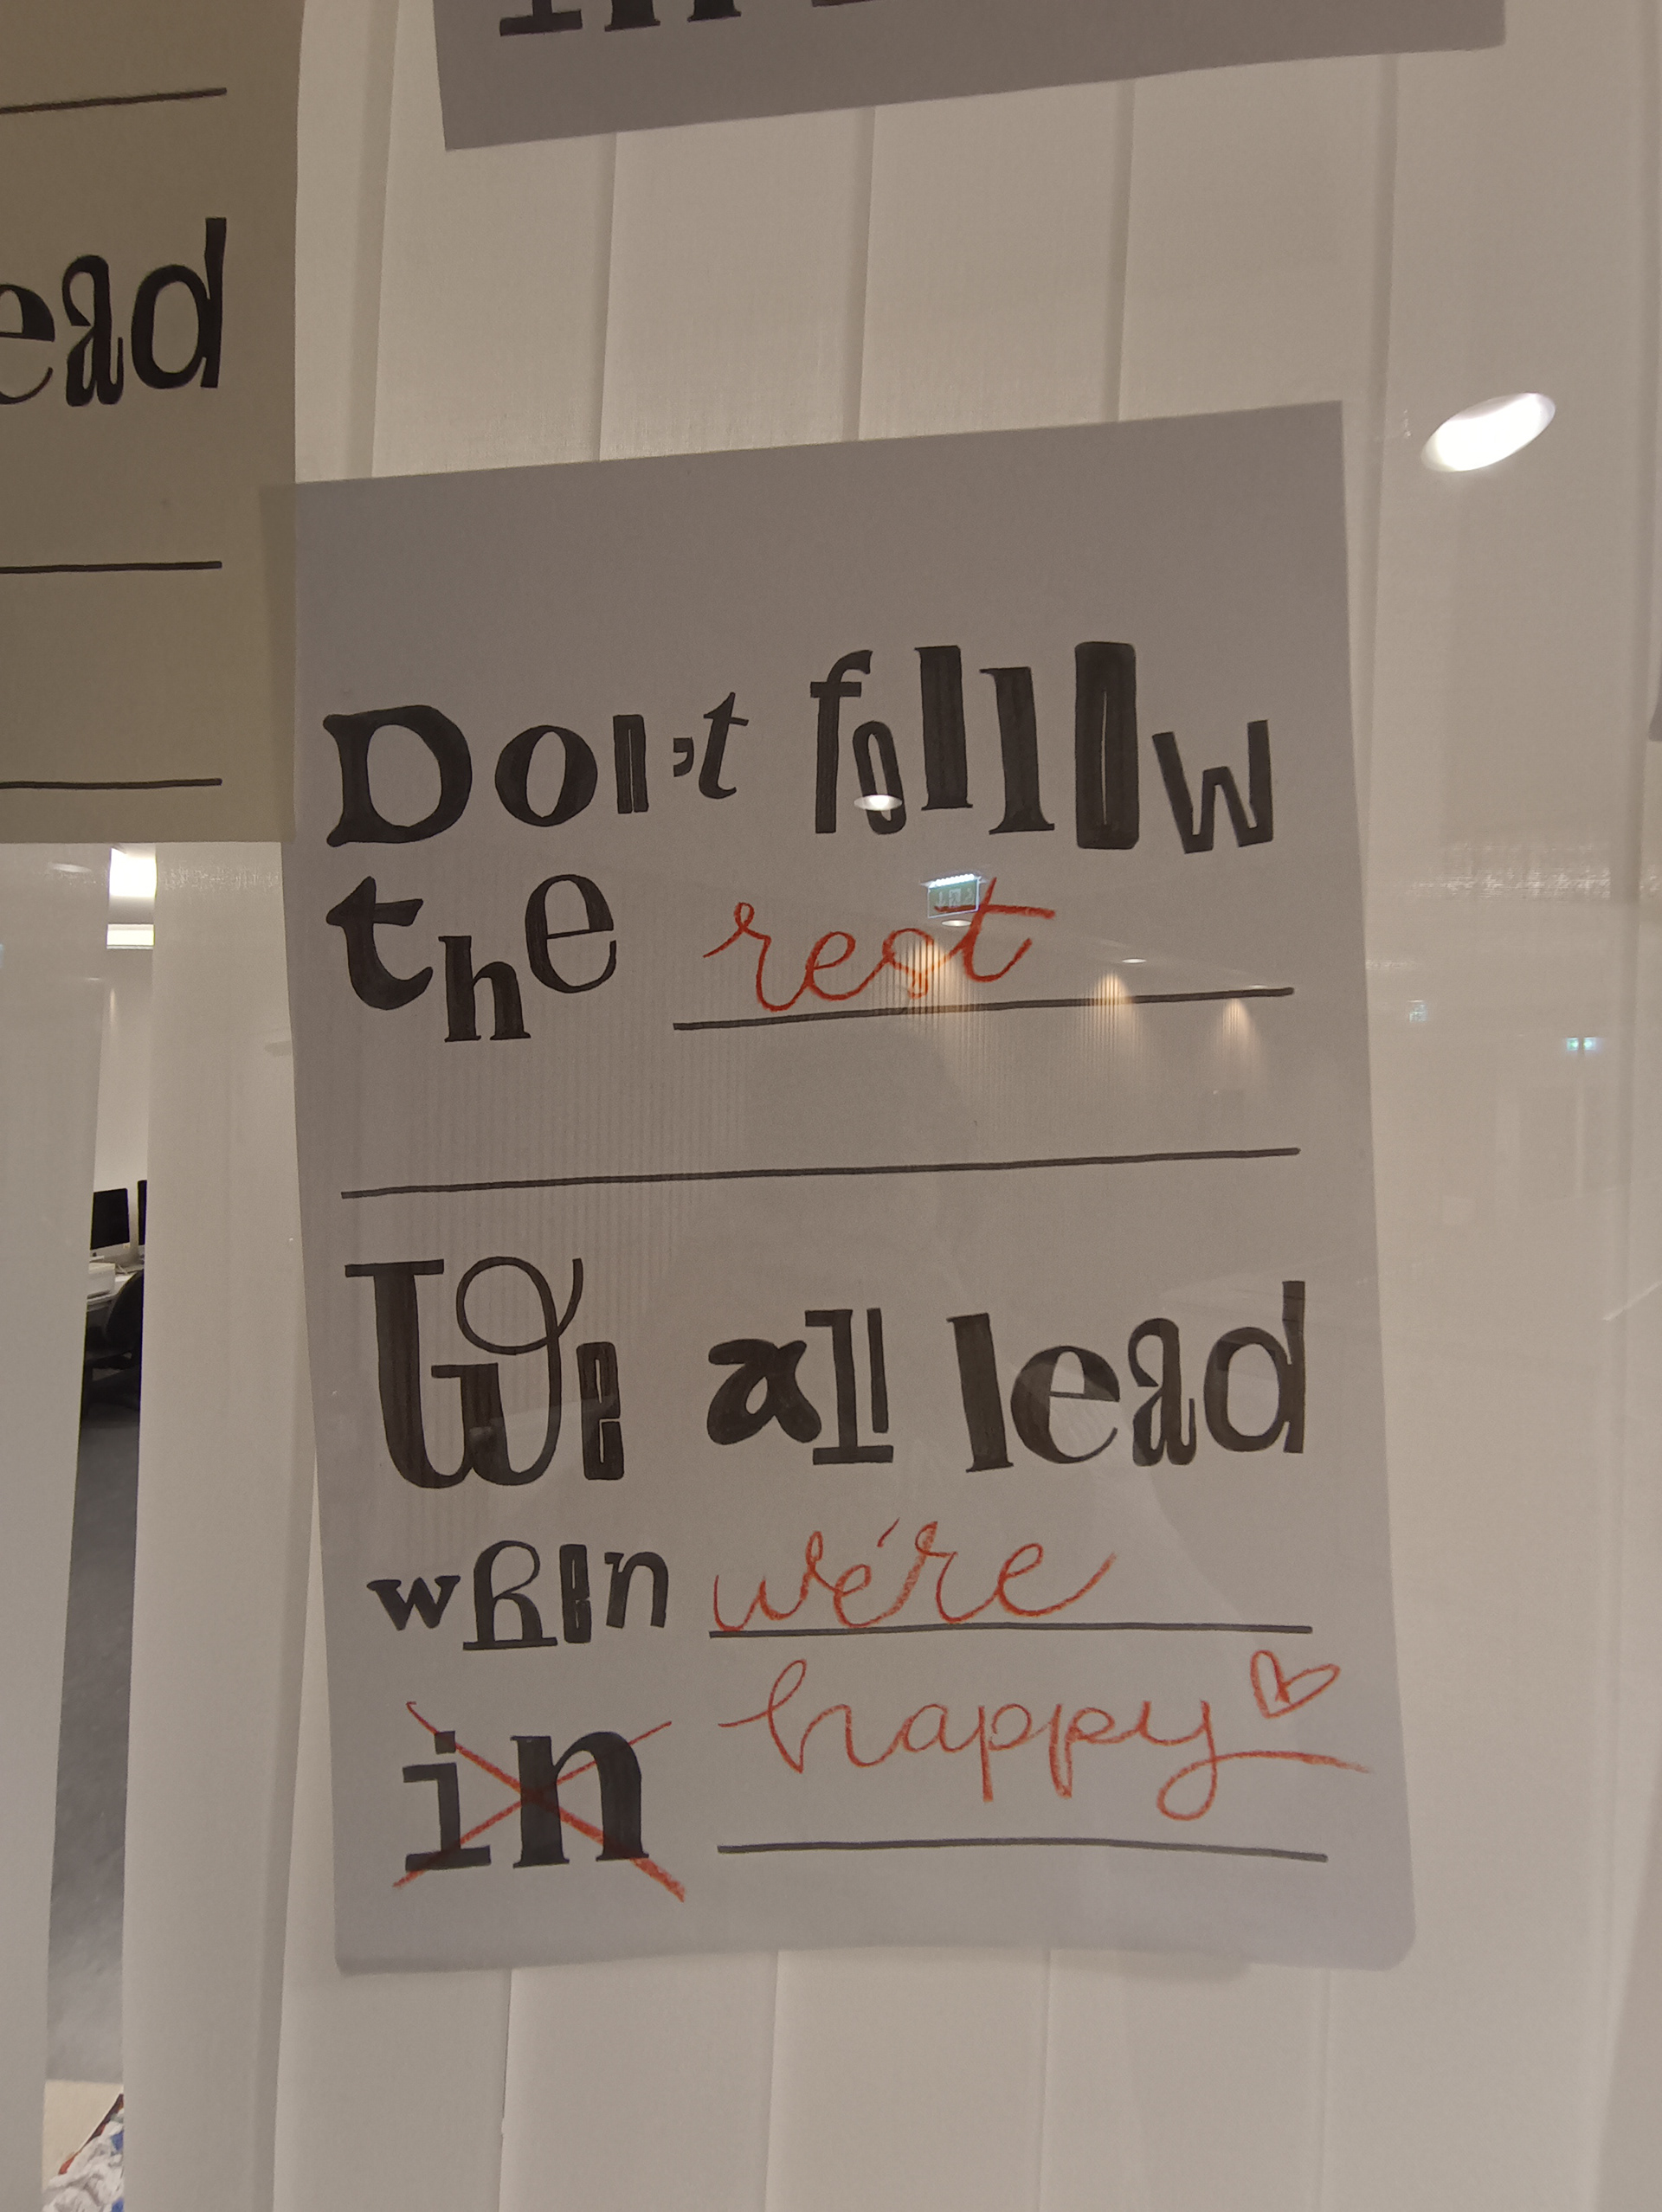 ead
Don't follow
the rest
We all lead
when we're
in happy